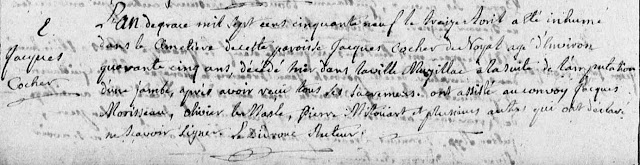 E.
Jacques
Cocher
L'An de grace mil sept cent cinquante neuf le treize Avril a été inhumé
dans le Cimetiere de cette paroisse Jacques Cocher du Noyal agé d'Environ
quarante cinq ans, décédé hier dans la ville Muzillac à la suite de l'amputation
d'une jambe, après avoir reçu tous les sacremens. ont assisté au convoy Jacques
Morisseau, olivier le Masle, Pierre et plusieurs autres qui ont déclaré
ne scavoir Signer. le Divrone Recteur.